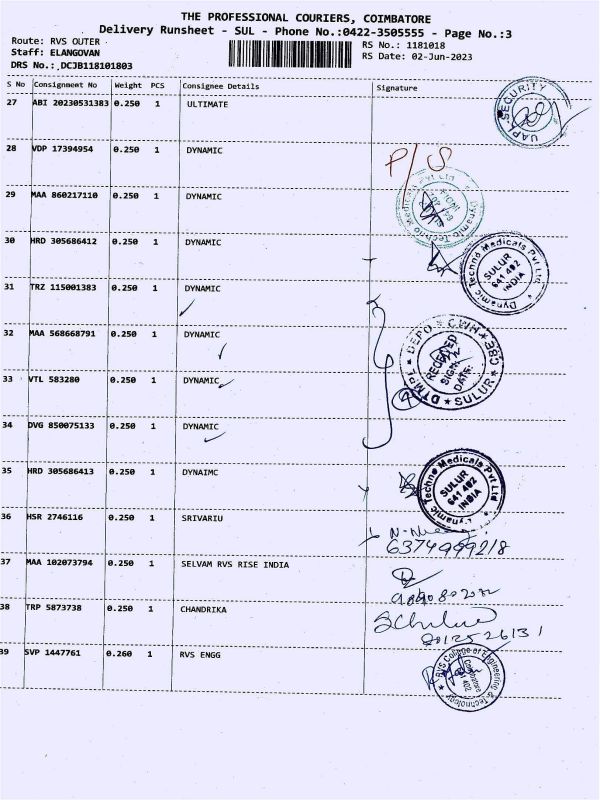 THE PROFESSIONAL COURIERS, COIMBATORE
Delivery Runsheet - SUL - Phone No.:0422-3505555 - Page No.:3
Route: RVS OUTER RS No.: 1181018
Staff: ELANGOVAN RS Date: 02-Jun-2023
DRS No.: DCJB118101803
S No Consignment No Weight PCS Consignee Details Signature
27 ABI 20230531383 0.250 1 ULTIMATE
UAPL SECURITY
28 VDP 17394954 0.250 1 DYNAMIC
P/S
29 MAA 860217110 0.250 1 DYNAMIC
Dynamic Techno Medicals Pvt Ltd
30 HRD 305686412 0.250 1 DYNAMIC
Dynamic Techno Medicals Pvt Ltd
SULUR
641 402
INDIA
31 TRZ 115001383 0.250 1 DYNAMIC
32 MAA 568668791 0.250 1 DYNAMIC
DTMPL * DEPO * CWH * CBE * SULUR *
RECEIVED
SIGN:
DATE:
33 VTL 583280 0.250 1 DYNAMIC
34 DVG 850075133 0.250 1 DYNAMIC
35 HRD 305686413 0.250 1 DYNAIMC
Dynamic Techno Medicals Pvt Ltd
SULUR
641 402
INDIA
36 HSR 2746116 0.250 1 SRIVARIU
6374999218
37 MAA 102073794 0.250 1 SELVAM RVS RISE INDIA
38 TRP 5873738 0.250 1 CHANDRIKA
39 SVP 1447761 0.260 1 RVS ENGG
RVS College of Engineering & Technology
Coimbatore